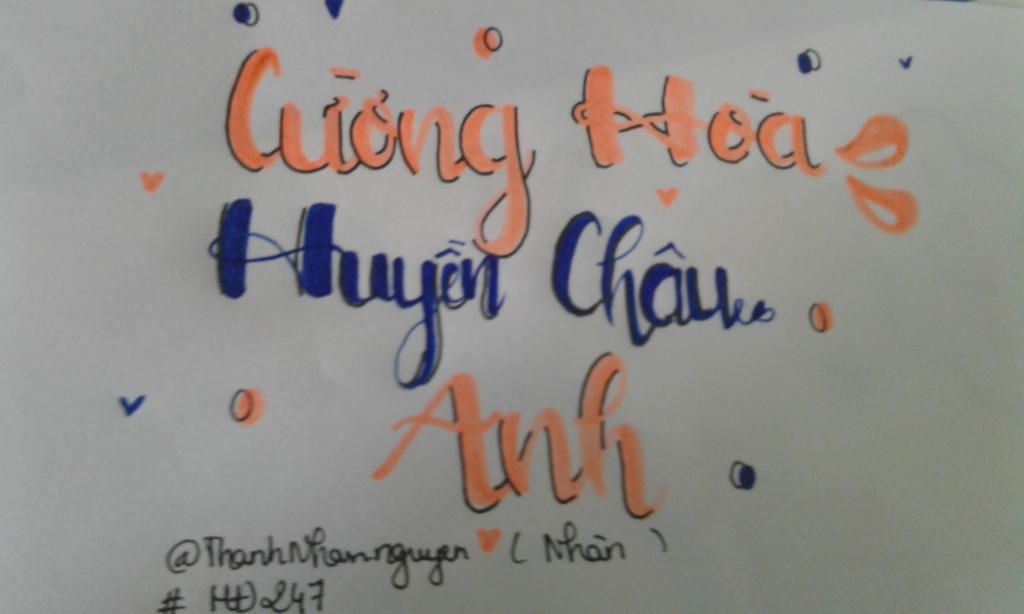 Cường Hòa
Huyền Châu
Anh
@ThanhNhannguyen (Nhàn)
# HĐ247